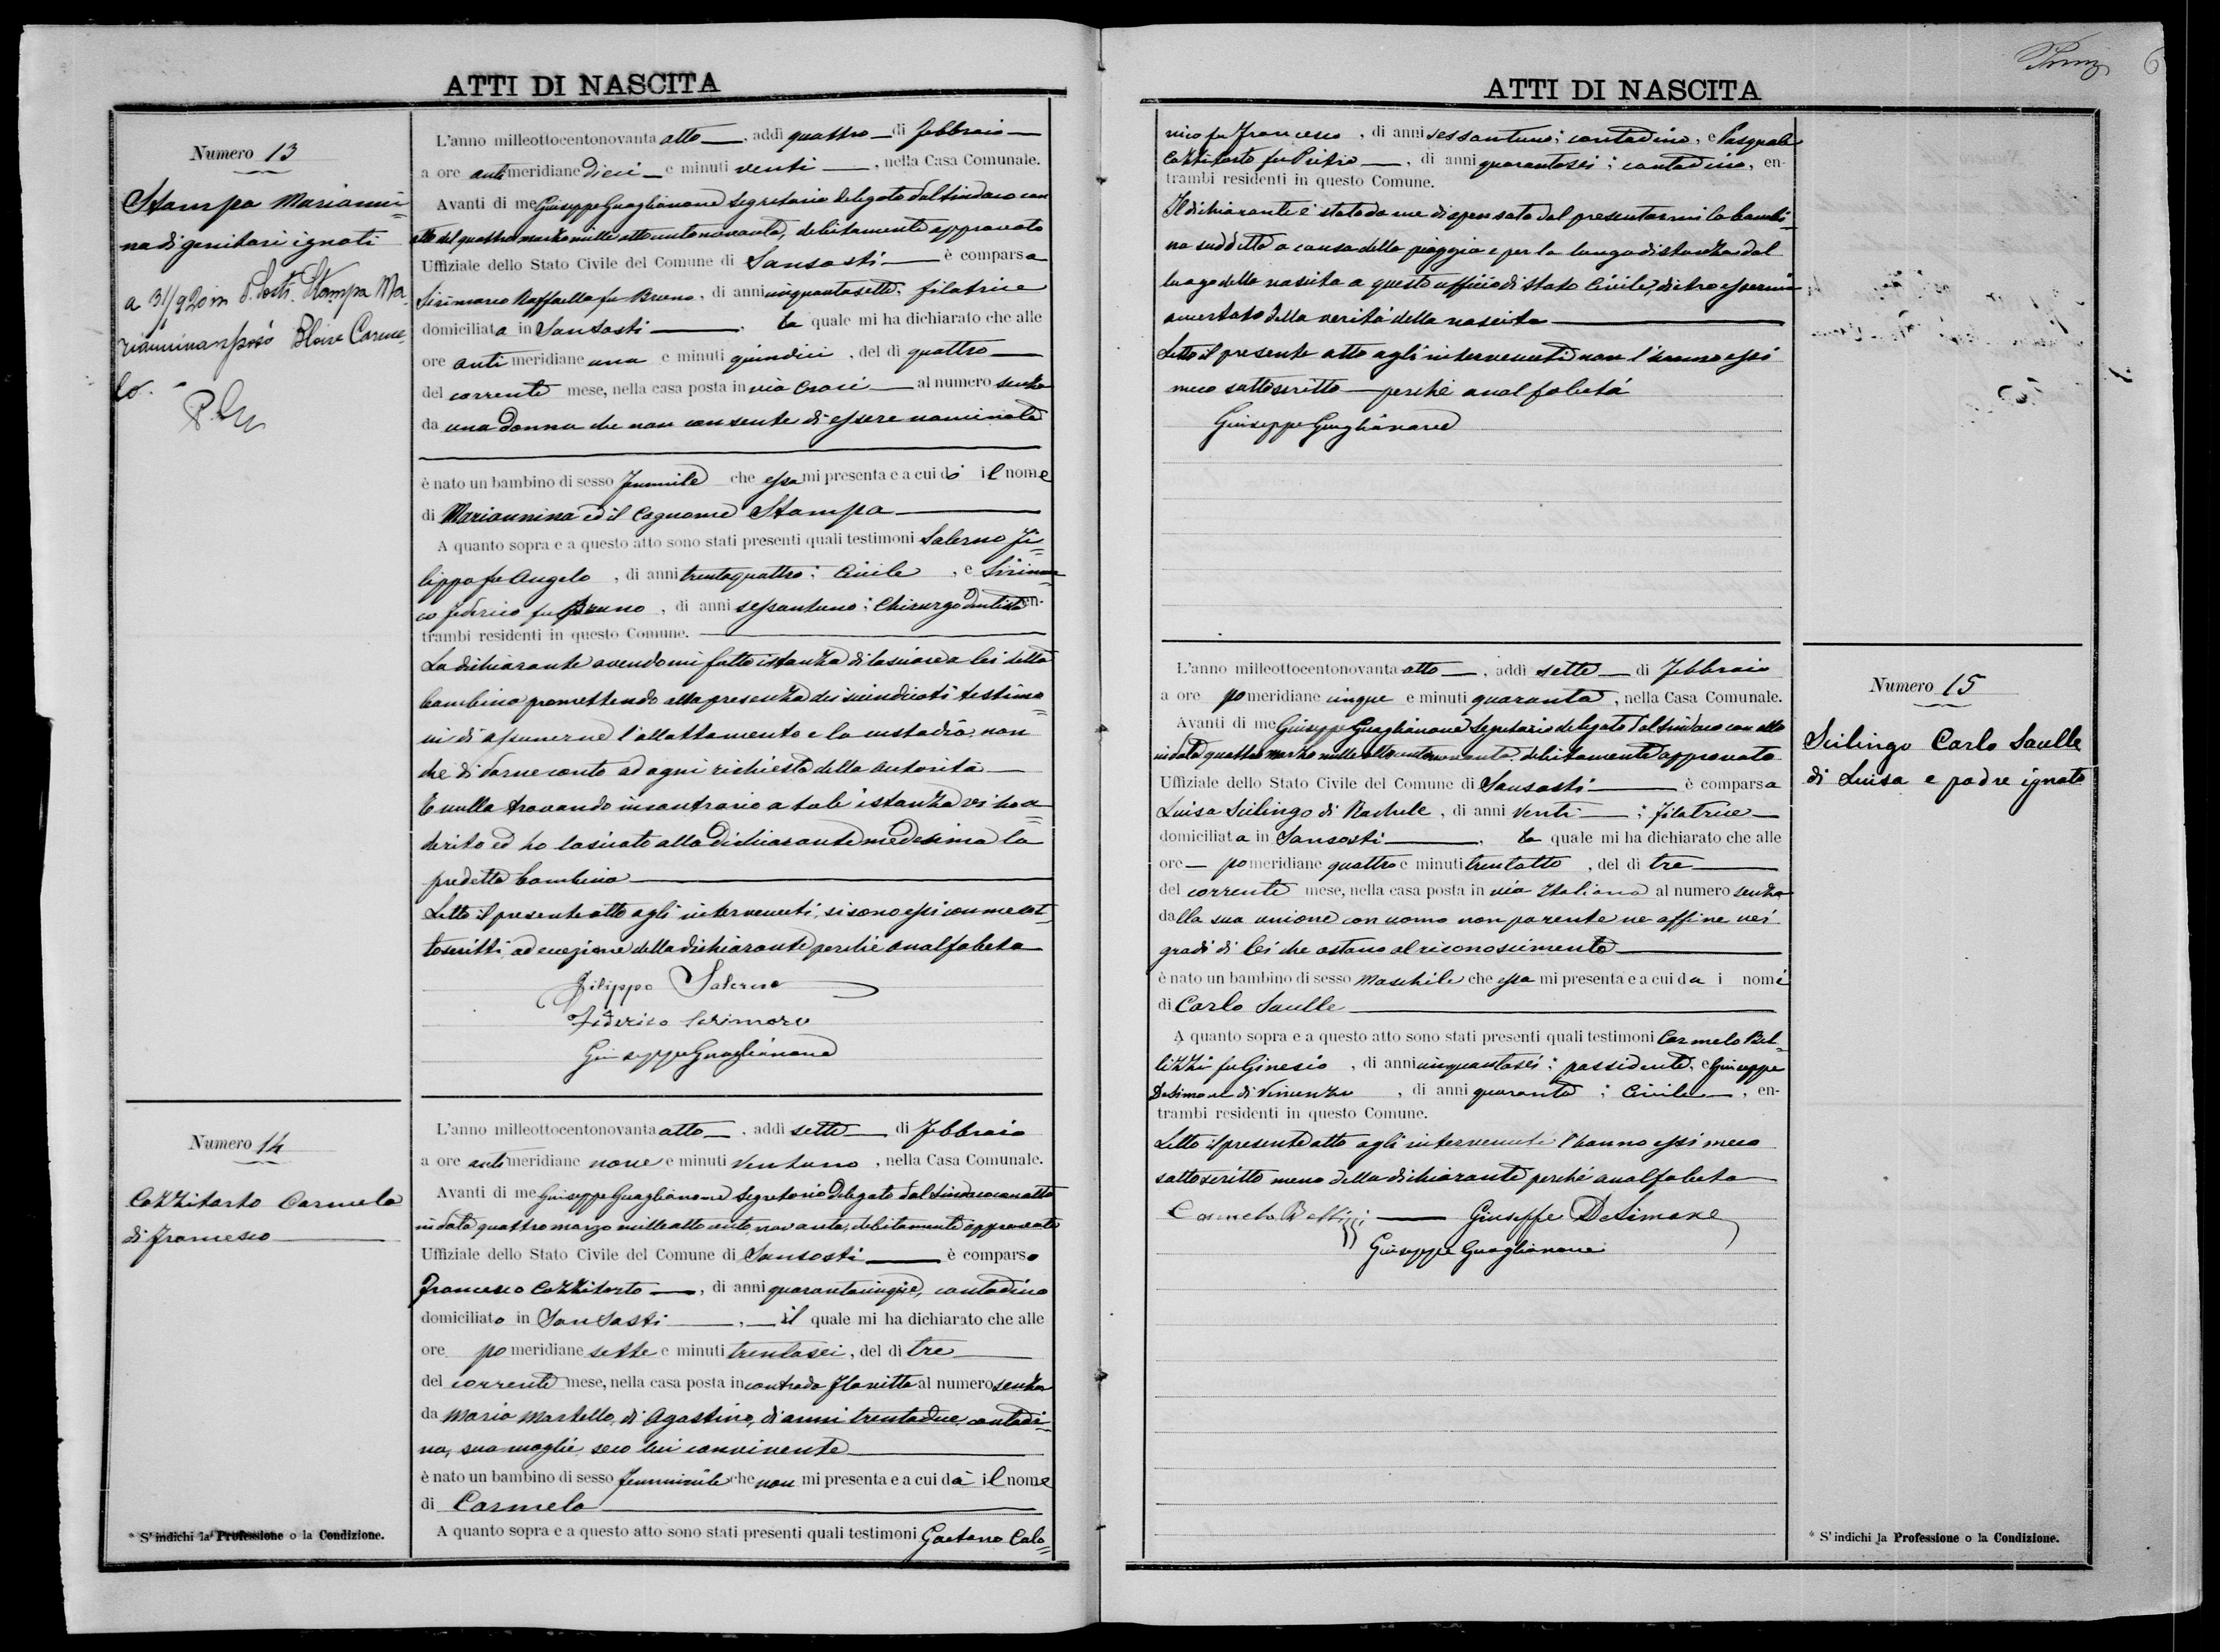 ATTI DI NASCITA
Numero 13
Stampa Mariannina
na di genitori ignoti
a 31/920 in S. Sosti Stampa Ma-
riannina sposò Bloise Carme-
lo.
L'anno milleottocentonovanta otto, addì quattro di Febbraio
a ore antimeridiane dieci e minuti venti, nella Casa Comunale.
Avanti di me Giuseppe Guaglianone Segretario delegato dal Sindaco con
atto del quattro marzo mille ottocentonovanta, debitamente approvato
Uffiziale dello Stato Civile del Comune di Sansosti è comparsa
Sirimarco Raffaella fu Bruno, di anni cinquantasette, filatrice
domiciliata in Sansosti, la quale mi ha dichiarato che alle
ore antimeridiane una e minuti quindici, del dì quattro
del corrente mese, nella casa posta in via Croci al numero senza
da una donna che non consente di essere nominata
è nato un bambino di sesso femminile che essa mi presenta e a cui dà il nome
di Mariannina ed il cognome Stampa
A quanto sopra e a questo atto sono stati presenti quali testimoni Salerno Fi=
lippo fu Angelo, di anni trentaquattro; Civile, e Sirimar
co Federico fu Bruno, di anni sessantuno; Chirurgo dentista en-
trambi residenti in questo Comune.
La dichiarante avendomi fatto istanza di lasciare a lei detta
bambina promettendo alla presenza dei suindicati testimo=
ni di assumerne l'allattamento e la custodia, non
che di darne conto ad ogni richiesta della autorità
E nulla trovando in contrario a tale istanza vi ho a=
derito ed ho lasciato alla dichiarante medesima la
predetta bambina
Letto il presente atto agli intervenuti, si sono essi con me sot
toscritti, ad eccezione della dichiarante perchè analfabeta
Filippo Salerno
Federico Sirimarco
Giuseppe Guaglianone
Numero 14
Cozzitorto Carmela
di Francesco
L'anno milleottocentonovanta otto, addì sette di Febbraio
a ore antimeridiane nove e minuti ventuno, nella Casa Comunale.
Avanti di me Giuseppe Guaglianone Segretario delegato dal Sindaco con atto
in data quattro marzo mille otto cento novanta, debitamente approvato
Uffiziale dello Stato Civile del Comune di Sansosti è comparso
Francesco Cozzitorto, di anni quarantacinque, contadino
domiciliato in Sansosti, il quale mi ha dichiarato che alle
ore pomeridiane sette e minuti trentasei, del dì tre
del corrente mese, nella casa posta in contrada al numero senza
da Maria Martello, di Agostino, di anni trentadue, contadi=
na, sua moglie seco lui convivente
è nato un bambino di sesso femminile che non mi presenta e a cui dà il nome
di Carmela
A quanto sopra e a questo atto sono stati presenti quali testimoni Gaetano Calo=
* S'indichi la Professione o la Condizione.
6
ATTI DI NASCITA
nico fu Francesco, di anni sessantuno; contadino, e Pasquale
Cozzitorto fu Pietro, di anni quarantasei; contadino, en-
trambi residenti in questo Comune.
Il dichiarante è stato da me dispensato dal presentarmi la bambi=
na suddetta a causa della pioggia e per la lunga distanza dal
luogo della nascita a questo ufficio di stato Civile, dietro essermi
accertato della verità della nascita
Letto il presente atto agli intervenuti non l'hanno essi
meco sottoscritto perchè analfabeti
Giuseppe Guaglianone
L'anno milleottocentonovanta otto, addì sette di Febbraio
a ore pomeridiane cinque e minuti quaranta, nella Casa Comunale.
Avanti di me Giuseppe Guaglianone Segretario delegato dal Sindaco con atto
in data quattro marzo mille ottocentonovanta debitamente approvato
Uffiziale dello Stato Civile del Comune di Sansosti è comparsa
Luisa Scilingo di Rachele, di anni venti; filatrice
domiciliata in Sansosti, la quale mi ha dichiarato che alle
ore pomeridiane quattro e minuti trentotto, del dì tre
del corrente mese, nella casa posta in via Italiana al numero senza
dalla sua unione con uomo non parente nè affine nei
gradi di lei che ostano al riconoscimento
è nato un bambino di sesso maschile che essa mi presenta e a cui da i nomi
di Carlo Saulle
A quanto sopra e a questo atto sono stati presenti quali testimoni Carmelo Bel=
lizzi fu Ginesio, di anni cinquantasei; possidente, e Giuseppe
DeSimone di Vincenzo, di anni quaranta; Civile, en-
trambi residenti in questo Comune.
Letto il presente atto agli intervenuti l'hanno essi meco
sottoscritto meno della dichiarante perchè analfabeta
Carmelo Bellizzi Giuseppe DeSimone
Giuseppe Guaglianone
Numero 15
Scilingo Carlo Saulle
di Luisa e padre ignoto
* S'indichi la Professione o la Condizione.